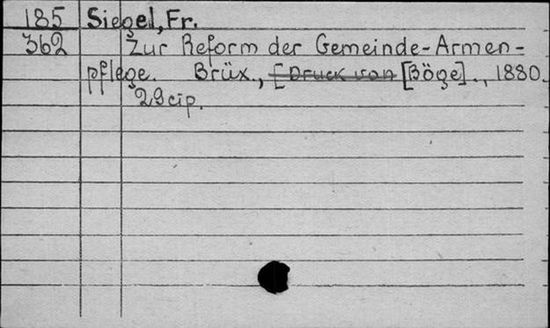 185 Siegel, Fr.
362 Zur Reform der Gemeinde-Armen-
pflege. Brüx., [Druck von [Böge]., 1880.
29 cip.